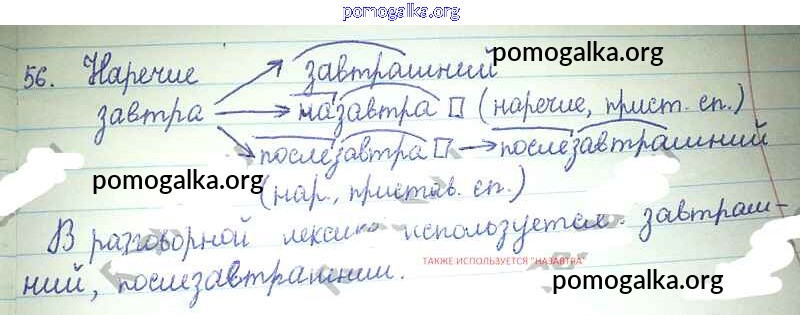 pomogalka.org
56. Наречие завтрашний pomogalka.org
завтра назавтра □ (наречие, прист. сп.)
послезавтра □ → послезавтрашний
pomogalka.org (нар., пристав. сп.)
В разговорной лексике используется завтраш-
ний, послезавтрашний.
ТАКЖЕ ИСПОЛЬЗУЕТСЯ "НАЗАВТРА"
pomogalka.org